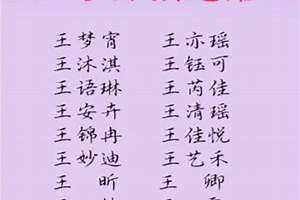 王梦宵 王亦瑶
王沐淇 王钰可
王语琳 王芮佳
王安卉 王清瑶
王锦冉 王佳悦
王妙迪 王艺禾
王 昕 王 卿